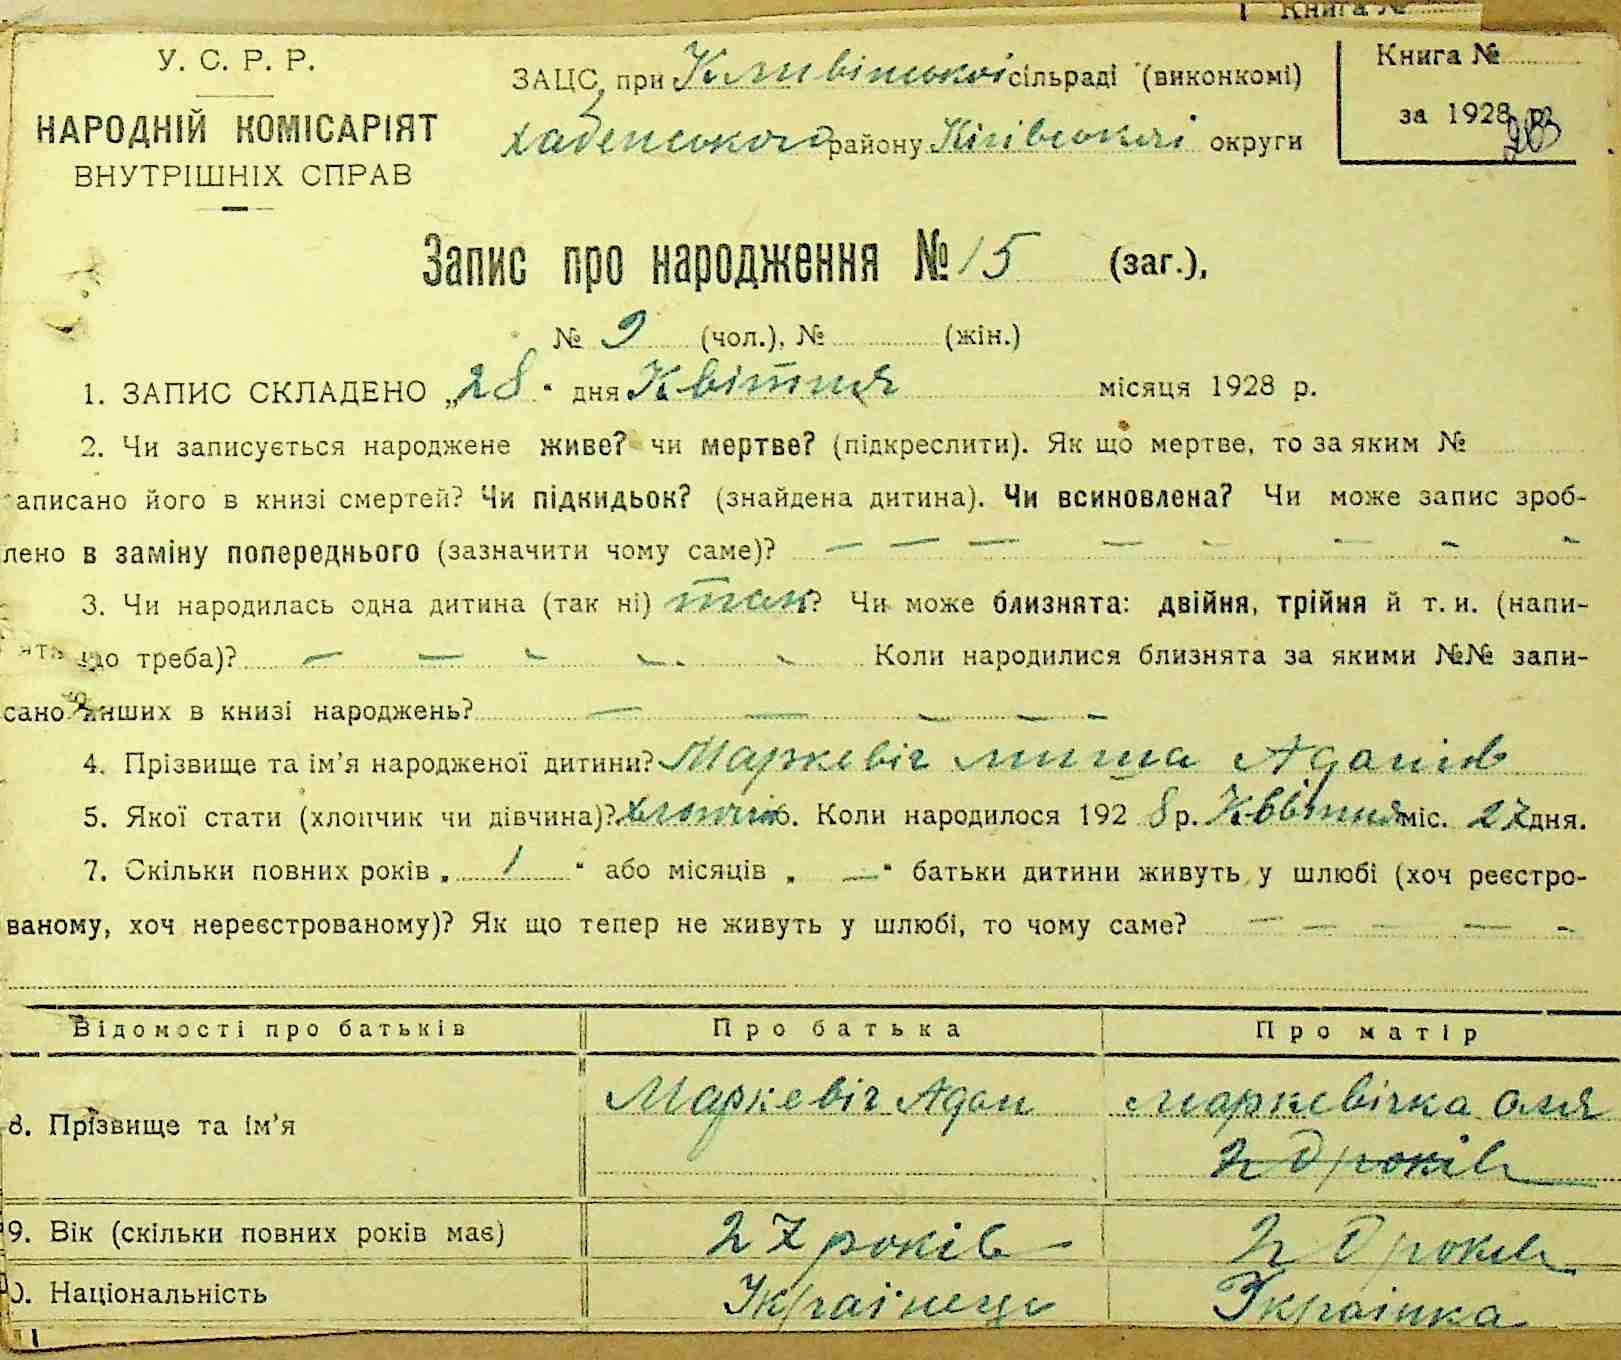 Книга №
У. С. Р. Р.
НАРОДНІЙ КОМІСАРІЯТ
ВНУТРІШНІХ СПРАВ
ЗАЦС при Кливінської сільраді (виконкомі)
Хабенського району Київської округи
Книга №
за 1928 р.
Запис про народження № 15 (заг.),
№ 9 (чол.), № (жін.)
1. ЗАПИС СКЛАДЕНО „28" дня Квітня місяця 1928 р.
2. Чи записується народжене живе? чи мертве? (підкреслити). Як що мертве, то за яким №
аписано його в книзі смертей? Чи підкидьок? (знайдена дитина). Чи всиновлена? Чи може запис зроб-
лено в заміну попереднього (зазначити чому саме)? — — — — - - - - -
3. Чи народилась одна дитина (так ні) так? Чи може близнята: двійня, трійня й т. и. (напи-
ять що треба)? — — - - - Коли народилися близнята за якими №№ запи-
сано инших в книзі народжень? — — - - -
4. Прізвище та ім'я народженої дитини? Маркевіч миша Адамів
5. Якої стати (хлопчик чи дівчина)? хлопчік 6. Коли народилося 1928 р. Квітня міс. 27 дня.
7. Скільки повних років „ 1 " або місяців „ — " батьки дитини живуть у шлюбі (хоч реєстро-
ваному, хоч нереєстрованому)? Як що тепер не живуть у шлюбі, то чому саме? — — — — -
Відомості про батьків Про батька Про матір
8. Прізвище та ім'я Маркевіч Адам маркевічка оля
20 років
9. Вік (скільки повних років має) 27 років 20 років
0. Національність Українець Українка